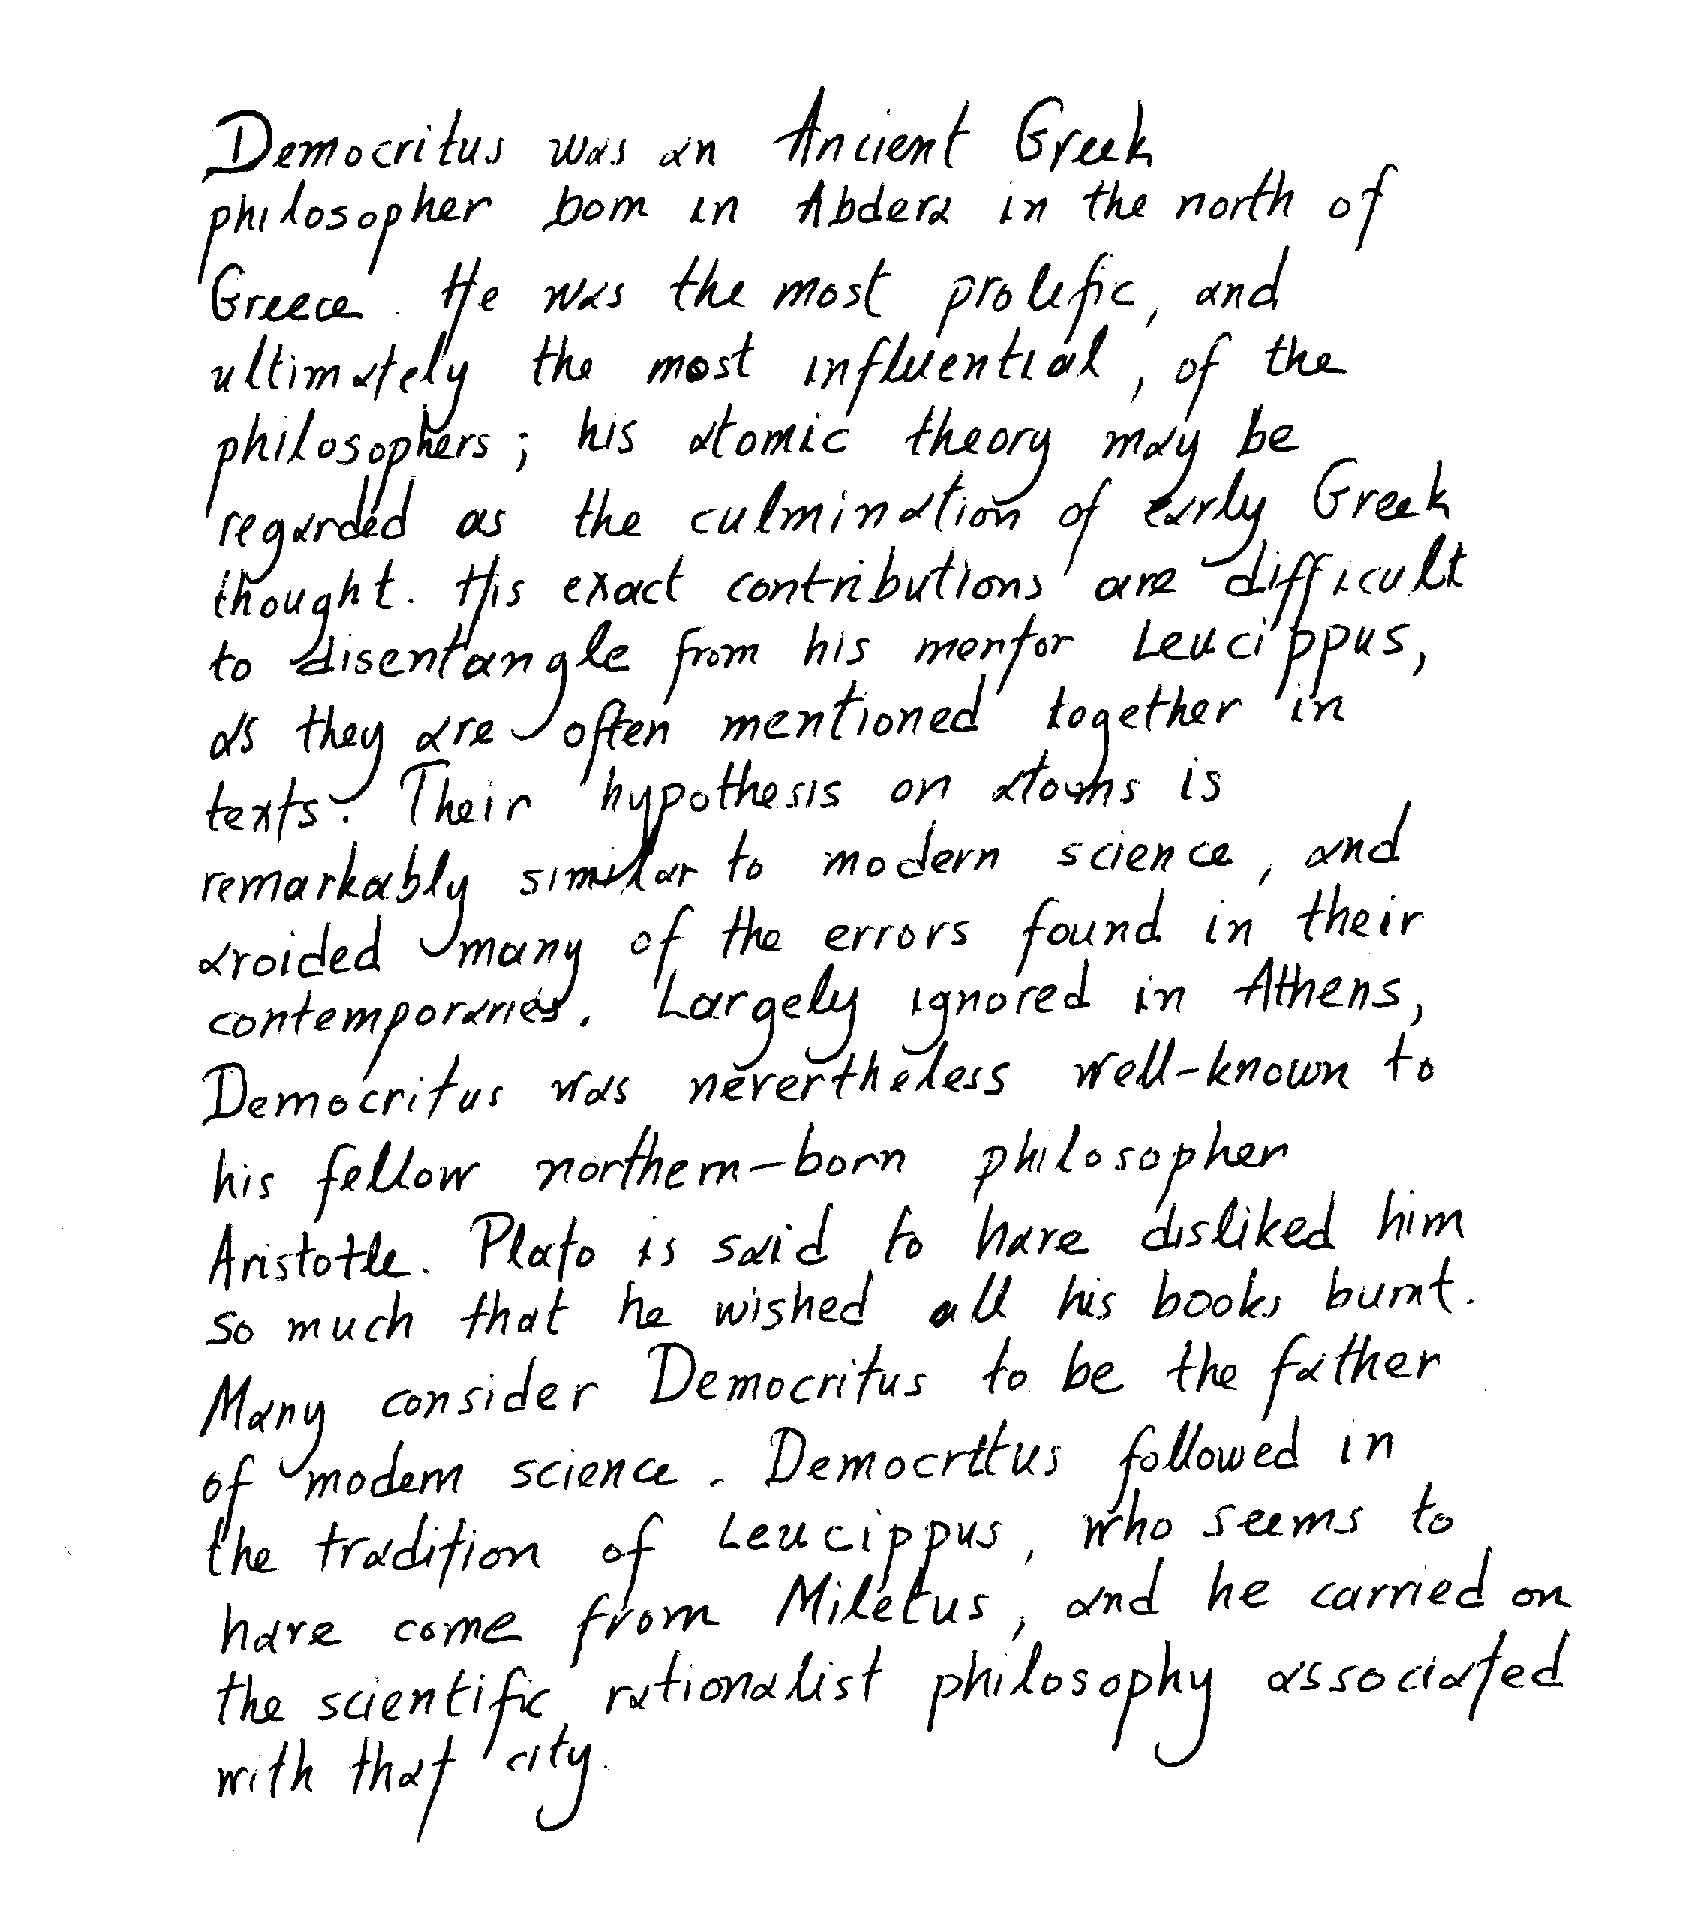 Democritus was an Ancient Greek
philosopher born in Abdera in the north of
Greece. He was the most prolific, and
ultimately the most influential, of the
philosophers; his atomic theory may be
regarded as the culmination of early Greek
thought. His exact contributions are difficult
to disentangle from his mentor Leucippus,
as they are often mentioned together in
texts. Their hypothesis on atoms is
remarkably similar to modern science, and
avoided many of the errors found in their
contemporaries. Largely ignored in Athens,
Democritus was nevertheless well-known to
his fellow northern-born philosopher
Aristotle. Plato is said to have disliked him
so much that he wished all his books burnt.
Many consider Democritus to be the father
of modern science. Democritus followed in
the tradition of Leucippus, who seems to
have come from Miletus, and he carried on
the scientific rationalist philosophy associated
with that city.